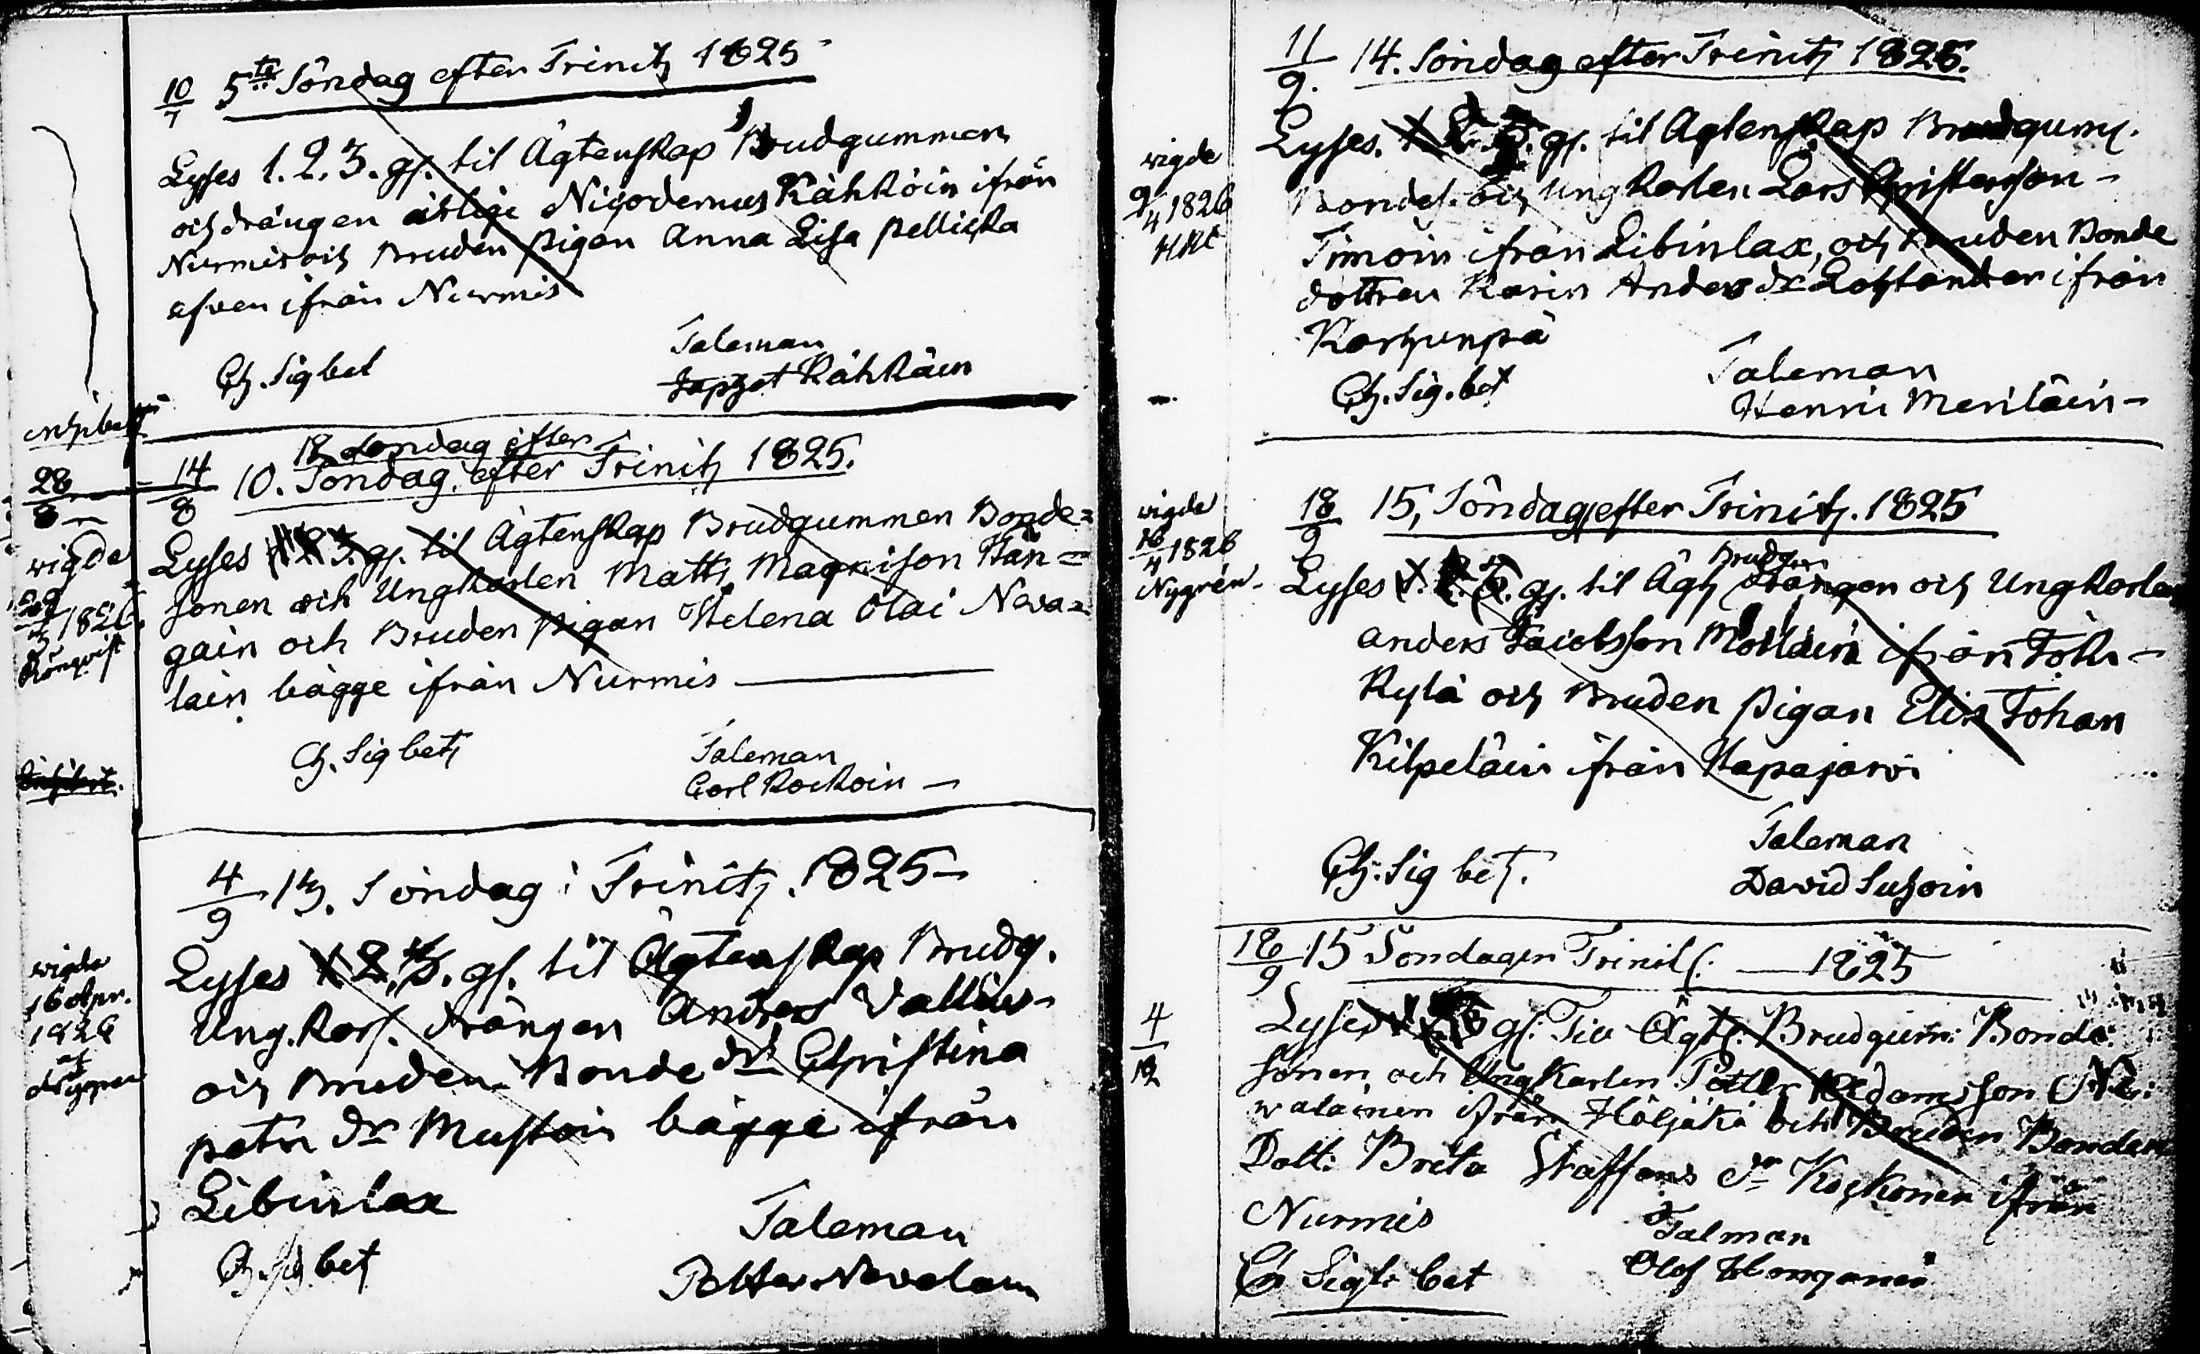 10/7 5te Söndag efter Trinit 1825
Lyses 1. 2. 3. gs. til Ägtenskap Brudgummen
och drängen ärlige Nicodemus Kähköin ifrån
Nurmis och Bruden pigan Anna Lisa Pellicka
afven ifrån Nurmis
Ch. Sig bet
Taleman
Kähkäin
14/8 12 Söndag efter
10. Söndag efter Trinit 1825.
28/8
wigde
1826
Rönqvist
Lyses 1 2 3. gs. til Ägtenskap Brudgummen Bonde=
sonen och Ungkarlen Matts Magnison Hän=
gain och Bruden pigan Helena Olai Neva=
lain bägge ifrån Nurmis
Ch. Sig bet
Taleman
Carl Kockoin
4/9 13. Söndag i Trinit. 1825
wigde
16 Apr.
1826
af
Lyses 1 2. 3. gs. til Ägtenskap Brudg.
Ung.kars. drängen Anders Vallius
och Bruden Bonde dr Christina
petr dr Mustoin bägge ifrån
Libinlax
Ch. Sig. bet
Taleman
Petter Nevalain
11/9. 14. Söndag efter Trinit 1825.
wigde
9/4 1826
Lyses. 1 2 3. gs. til Ägtenskap Brudgum.
Bondes. och Ungkarlen Lars Christerson
Timoin ifrån Libinlax, och Bruden Bonde
dottren Karin Anders dr ifrån
Karhunpä
Ch. Sig. bet
Taleman
Henric Meriläin
18/9 15, Söndag efter Trinit. 1825
wigde
16/4 1826
Nygrén
Brudg
Lyses 1. 2. 3. gs. til Ägt drängen och Ungkarlen
Anders Jacobsson ifrån Joki
kylä och Bruden pigan Elin Johan
Kilpeläin ifrån Hapajarvi
Ch. Sig bet.
Taleman
David Suhoin
18/9 15 Söndagen Trinit: 1825
4/12
Lyses 1 2 3 gs: Til Ägts: Brudgum: Bonde
sonen och Ungkarlen Petter Adamsson Ne:
walainen ifrån Höljäkä och Bruden Bonden
Dott: Breta Staffans dr Kockonen ifrån
Nurmis
Ch Sigt: bet
Talman
Olof